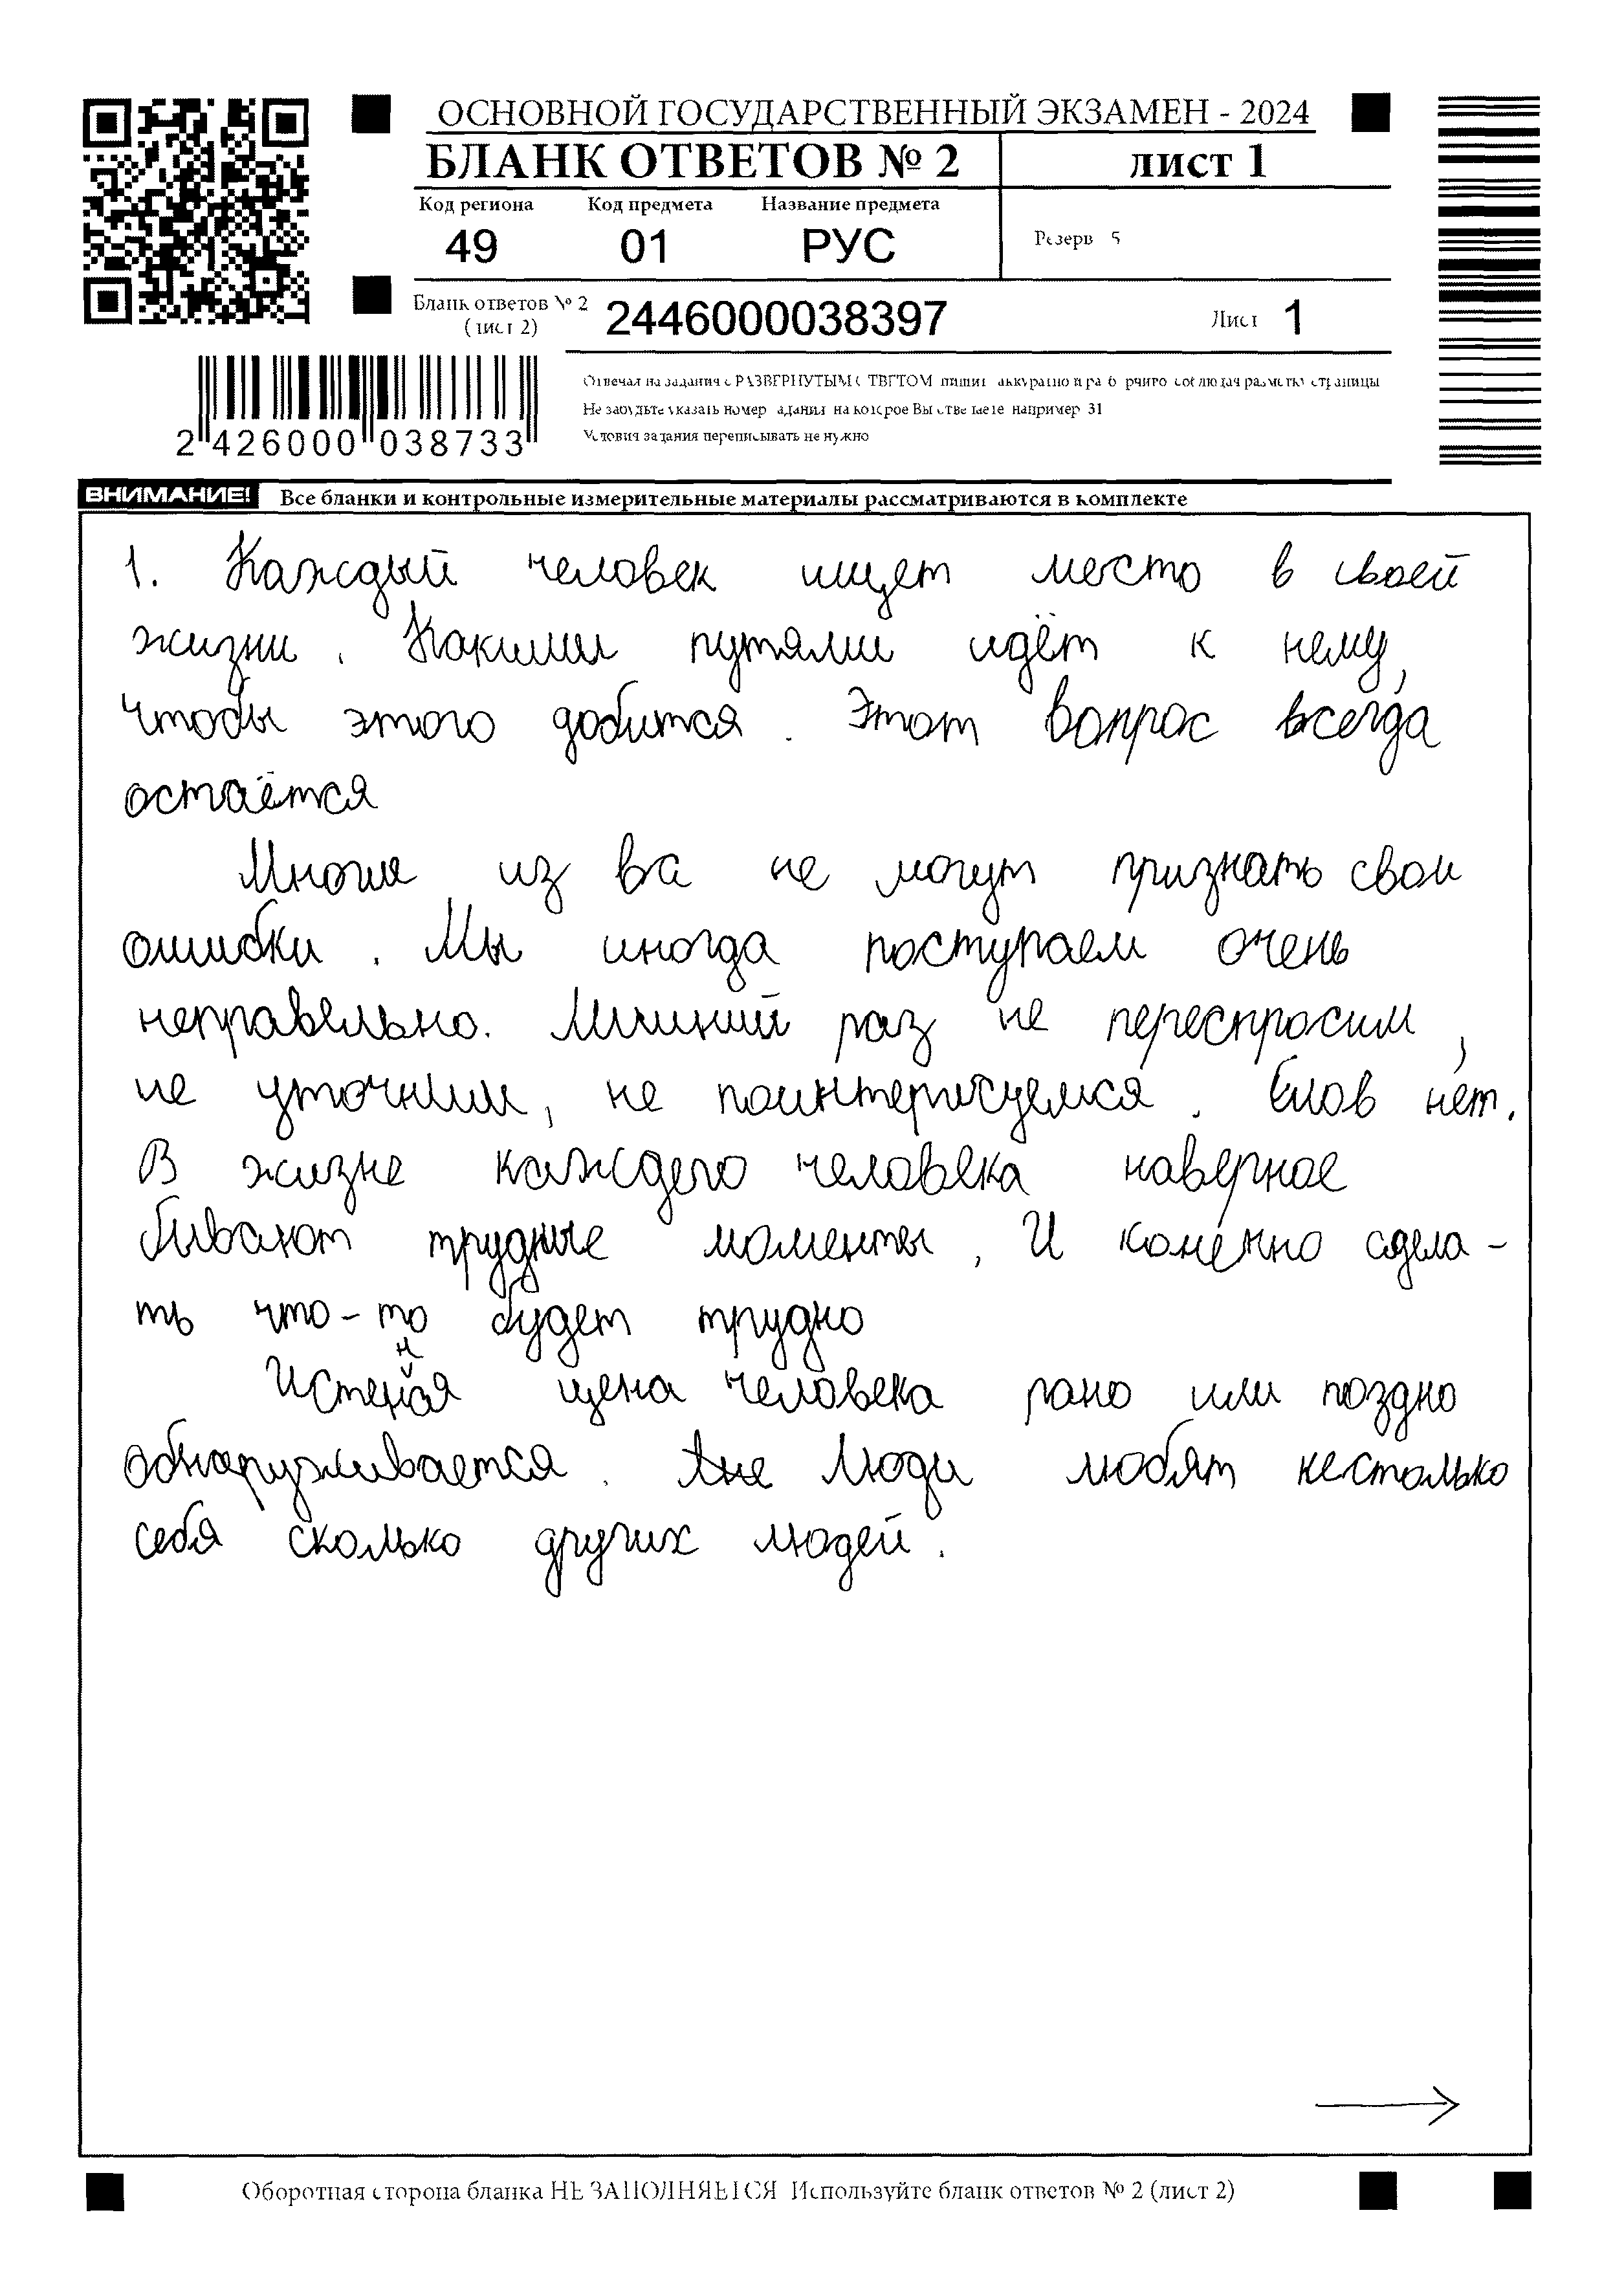 ОСНОВНОЙ ГОСУДАРСТВЕННЫЙ ЭКЗАМЕН - 2024
БЛАНК ОТВЕТОВ № 2 лист 1
Код региона Код предмета Название предмета
49 01 РУС Резерв 5
Бланк ответов № 2 (лист 2) 2446000038397 Лист 1
2 426000 038733
Отвечая на задания с РАЗВЕРНУТЫМ ОТВЕТОМ пишите аккуратно и разборчиво соблюдая разметку страницы
Не забудьте указать номер задания на которое Вы отвечаете например 31
Условия задания переписывать не нужно
ВНИМАНИЕ! Все бланки и контрольные измерительные материалы рассматриваются в комплекте
1. Каждый человек ищет место в своей
жизни. Какими путями идёт к нему,
чтобы этого добится. Этот вопрос всегда
остаётся
Многие из ва не могут признать свои
ошибки. Мы иногда поступаем очень
неправельно. Лишний раз не переспросим,
не уточним, не поинтересуемся. Слов нет.
В жизне каждого человека наверное
бывают трудные моменты, И конечно сдела-
ть что-то будет трудно
Истенная цена человека рано или поздно
обнаруживается. Люди любят нестолько
себя сколько других людей.
Оборотная сторона бланка НЕ ЗАПОЛНЯЕТСЯ Используйте бланк ответов № 2 (лист 2)